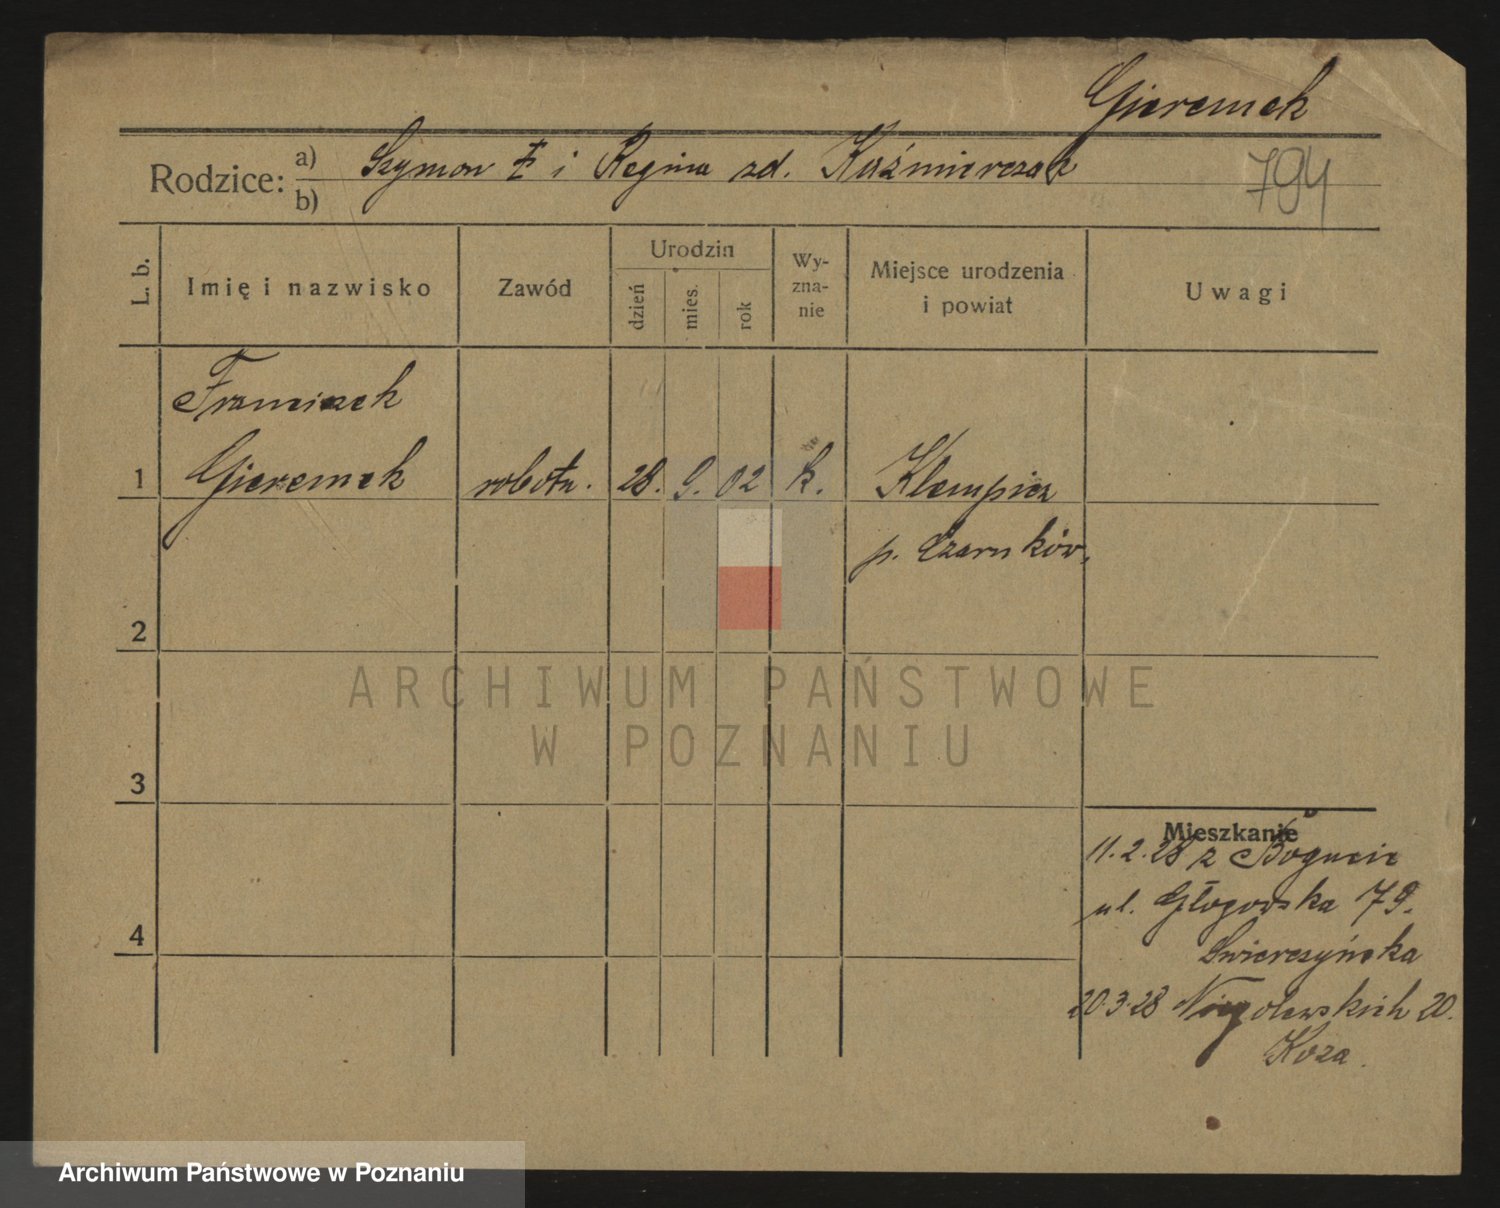 Gieremek
Rodzice: a) Szymon i Regina zd. Kaźmierczak
b)
794
L. b.
Imię i nazwisko
Zawód
Urodzin
dzień
mies.
rok
Wy-
zna-
nie
Miejsce urodzenia
i powiat
Uwagi
Franciszek
1 Gieremek robotn. 28. 9. 02 k. Klempicz
p. Czarnków.
2
3
4
Mieszkanie
11.2.28 z Bogucic
ul. Głogowska 79.
Swierczyńska
20.3.28 Niegolewskich 20.
Koza.
ARCHIWUM PAŃSTWOWE
W POZNANIU
Archiwum Państwowe w Poznaniu